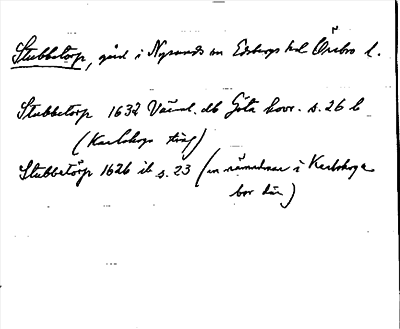 Stubbetorp, gård i Nysunds sn Edsbergs hd Örebro l.
Stubbetorp 1632 Värml. db Göta hovr. s. 26 b
(Karlskoga ting)
Stubbetårp 1626 ib s. 23 (en nämndman i Karlskoga
bor där)